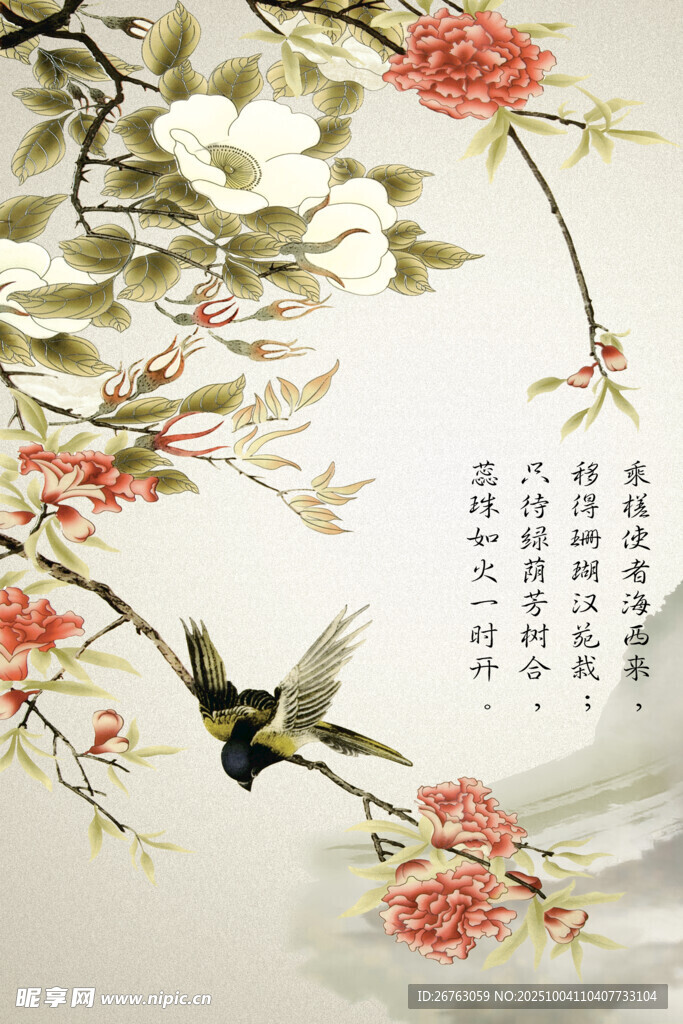 乘槎使者海西来，
移得珊瑚汉苑栽；
只待绿荫芳树合，
蕊珠如火一时开。
昵享网 www.nipic.cn
ID:26763059 NO:20251004110407733104